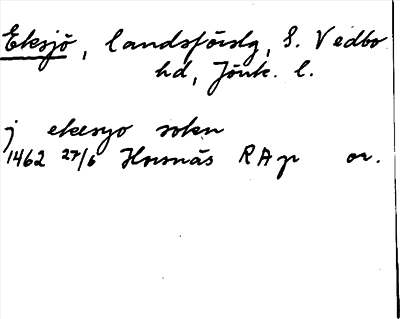 Eksjö, landsförslg, S. Vedbo
hd, Jönk. l.
j ekesyo sokn
1462 27/6 Hornäs RAp or.